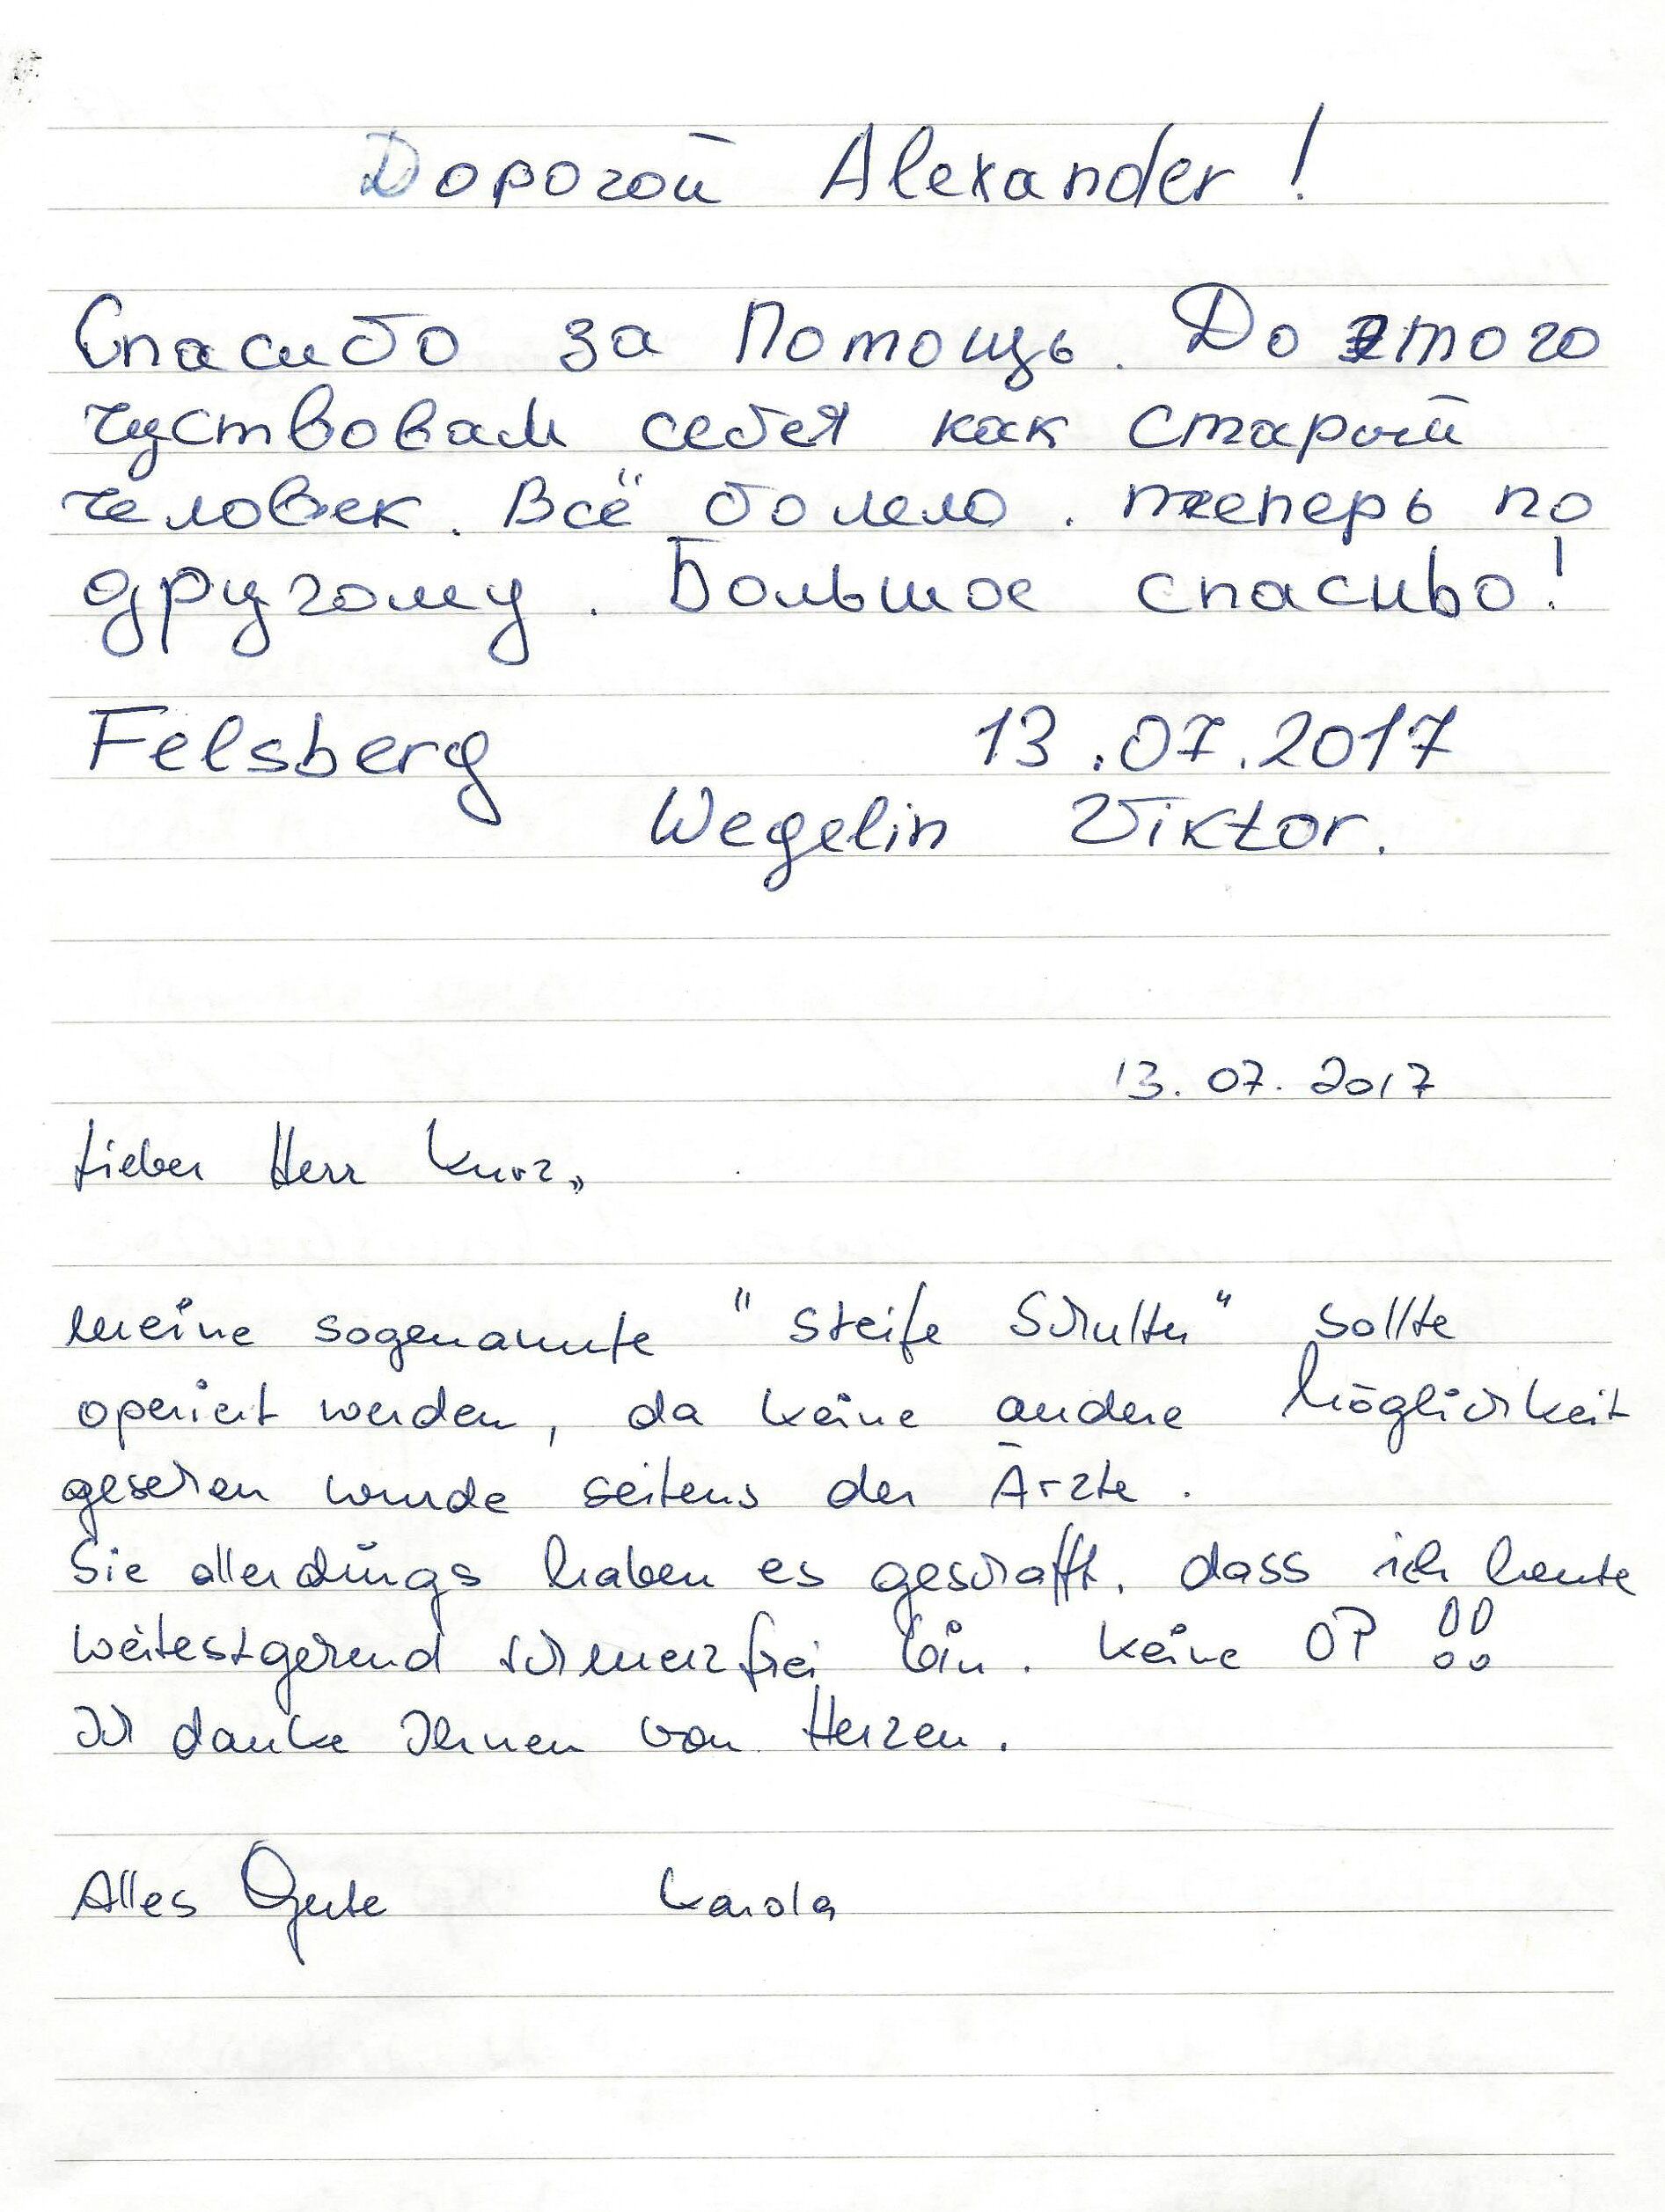 Дорогой Alexander!
Спасибо за Помощь. До этого
чуствовал себея как старый
человек. Всё болело. теперь по
другому. Большое спасиьо!
Felsberg 13.07.2017
Wegelin Viktor.
13. 07. 2017
Lieber Herr Kurz,,
meine sogenannte "steife Schulter" sollte
operiert werden, da keine andere Möglichkeit
gesehen wurde seitens der Ärzte.
Sie allerdings haben es geschafft, dass ich heute
weitestgehend schmerzfrei bin. Keine OP !!
Ich danke Ihnen von Herzen.
Alles Gute Karola